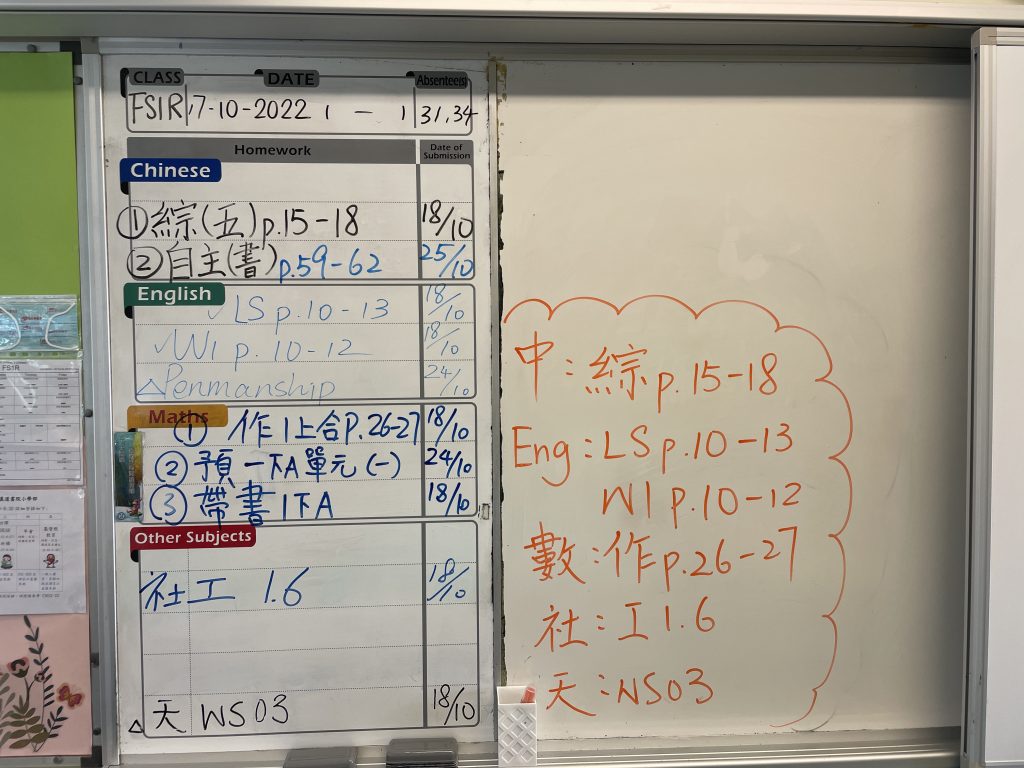 CLASS DATE Absentee(s)
FS1R 17-10-2022 1 — 1 31,34
Homework Date of Submission
Chinese
①綜(五)p.15-18 18/10
②自主(書)p.59-62 25/10
English
✓LS p.10-13 18/10
✓W1 p.10-12 18/10
△Penmanship 24/10
Maths
① 作1上合P.26-27 18/10
② 預一下A單元(一) 24/10
③ 帶書1下A 18/10
Other Subjects
社工 1.6 18/10
△ 天 WS03 18/10
中:綜p.15-18
Eng:LS p.10-13
W1 p.10-12
數:作p.26-27
社:工1.6
天:WS03
FS1R